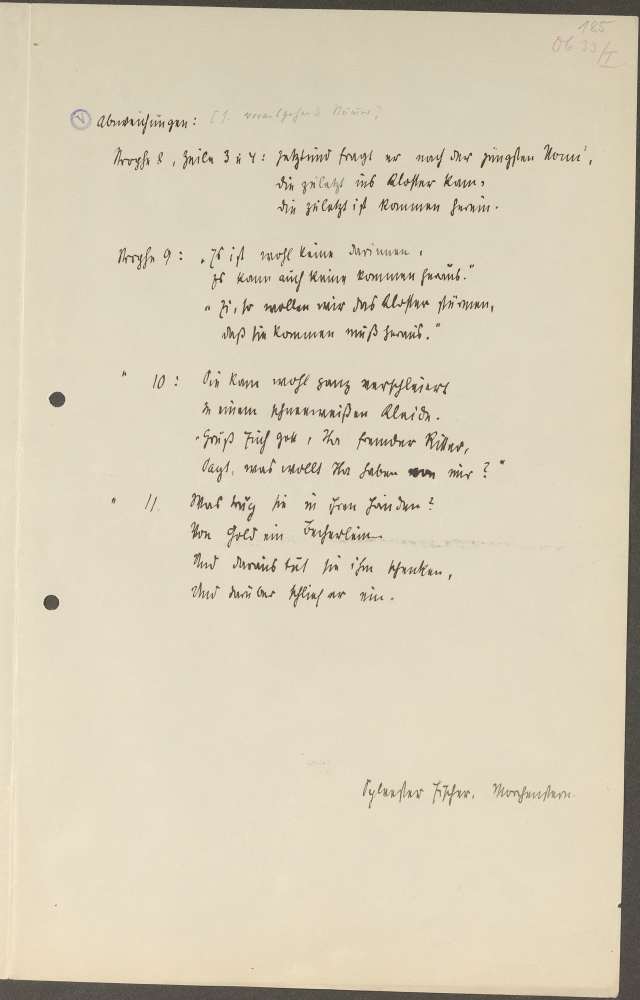 185
Ob 33/I
V Abweichungen: [s. vorausgehende Nummer]
Strophe 8, Zeile 3 u 4: Jetztund fragt er nach der jüngsten Nonn',
die zuletzt ins Kloster kam,
die zuletzt ist kommen herein.
Strophe 9: „Es ist wohl keine darinnen,
Es kann auch keine kommen heraus."
„Ei, so wollen wir das Kloster stürmen,
daß sie kommen muß heraus."
" 10: Sie kam wohl ganz verschleiert
In einem schneeweißen Kleide.
„Grüß Euch Gott, Ihr fremder Ritter,
Sagt, was wollt Ihr haben von mir?"
" 11. Was trug sie in ihren Händen?
Von Gold ein Becherlein
Und daraus tut sie ihm schenken,
Und darüber schlief er ein.
Sylvester Fischer, Morgenstern